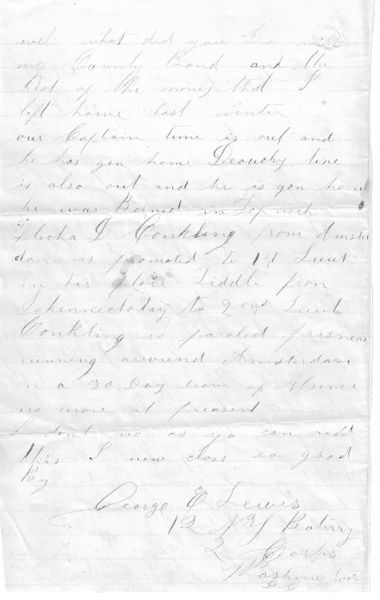 well what did you do with
my County Bond and the
Rest of the money that I
left home last winter
our Captain time is out and
he has gon home time
is also out and he is gon home
he was Borned in
D Conkling from Amster
dam is promoted to 1st Lieut
in his place Liddle from
Schennectaday to 2 ond Lieut
Conkling is paroled prisner
running arround Amsterdam
on a 30 Day leave of
no more at preasent
I dont no as yo can redd
this I now close so good
By
George E Lewis
12 NY Baterry
2 Corps
Washington
D C